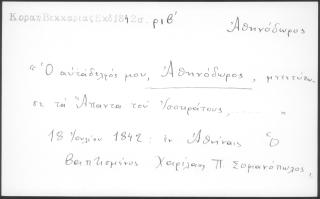 Κοραῆ Βεκκαρίας Ἐκδ 1842 σ. ριβ'
Ἀθηνόδωρος
"Ὁ αὐτάδελφός μου, Ἀθηνόδωρος,
σε τὰ Ἅπαντα τοῦ Ἰσοκράτους, ...... "
18 Ἰουλίου 1842: ἐν Ἀθήναις "Ὁ
βαπτισμένος Χαρίλαος Π. Σομανόπωλος,